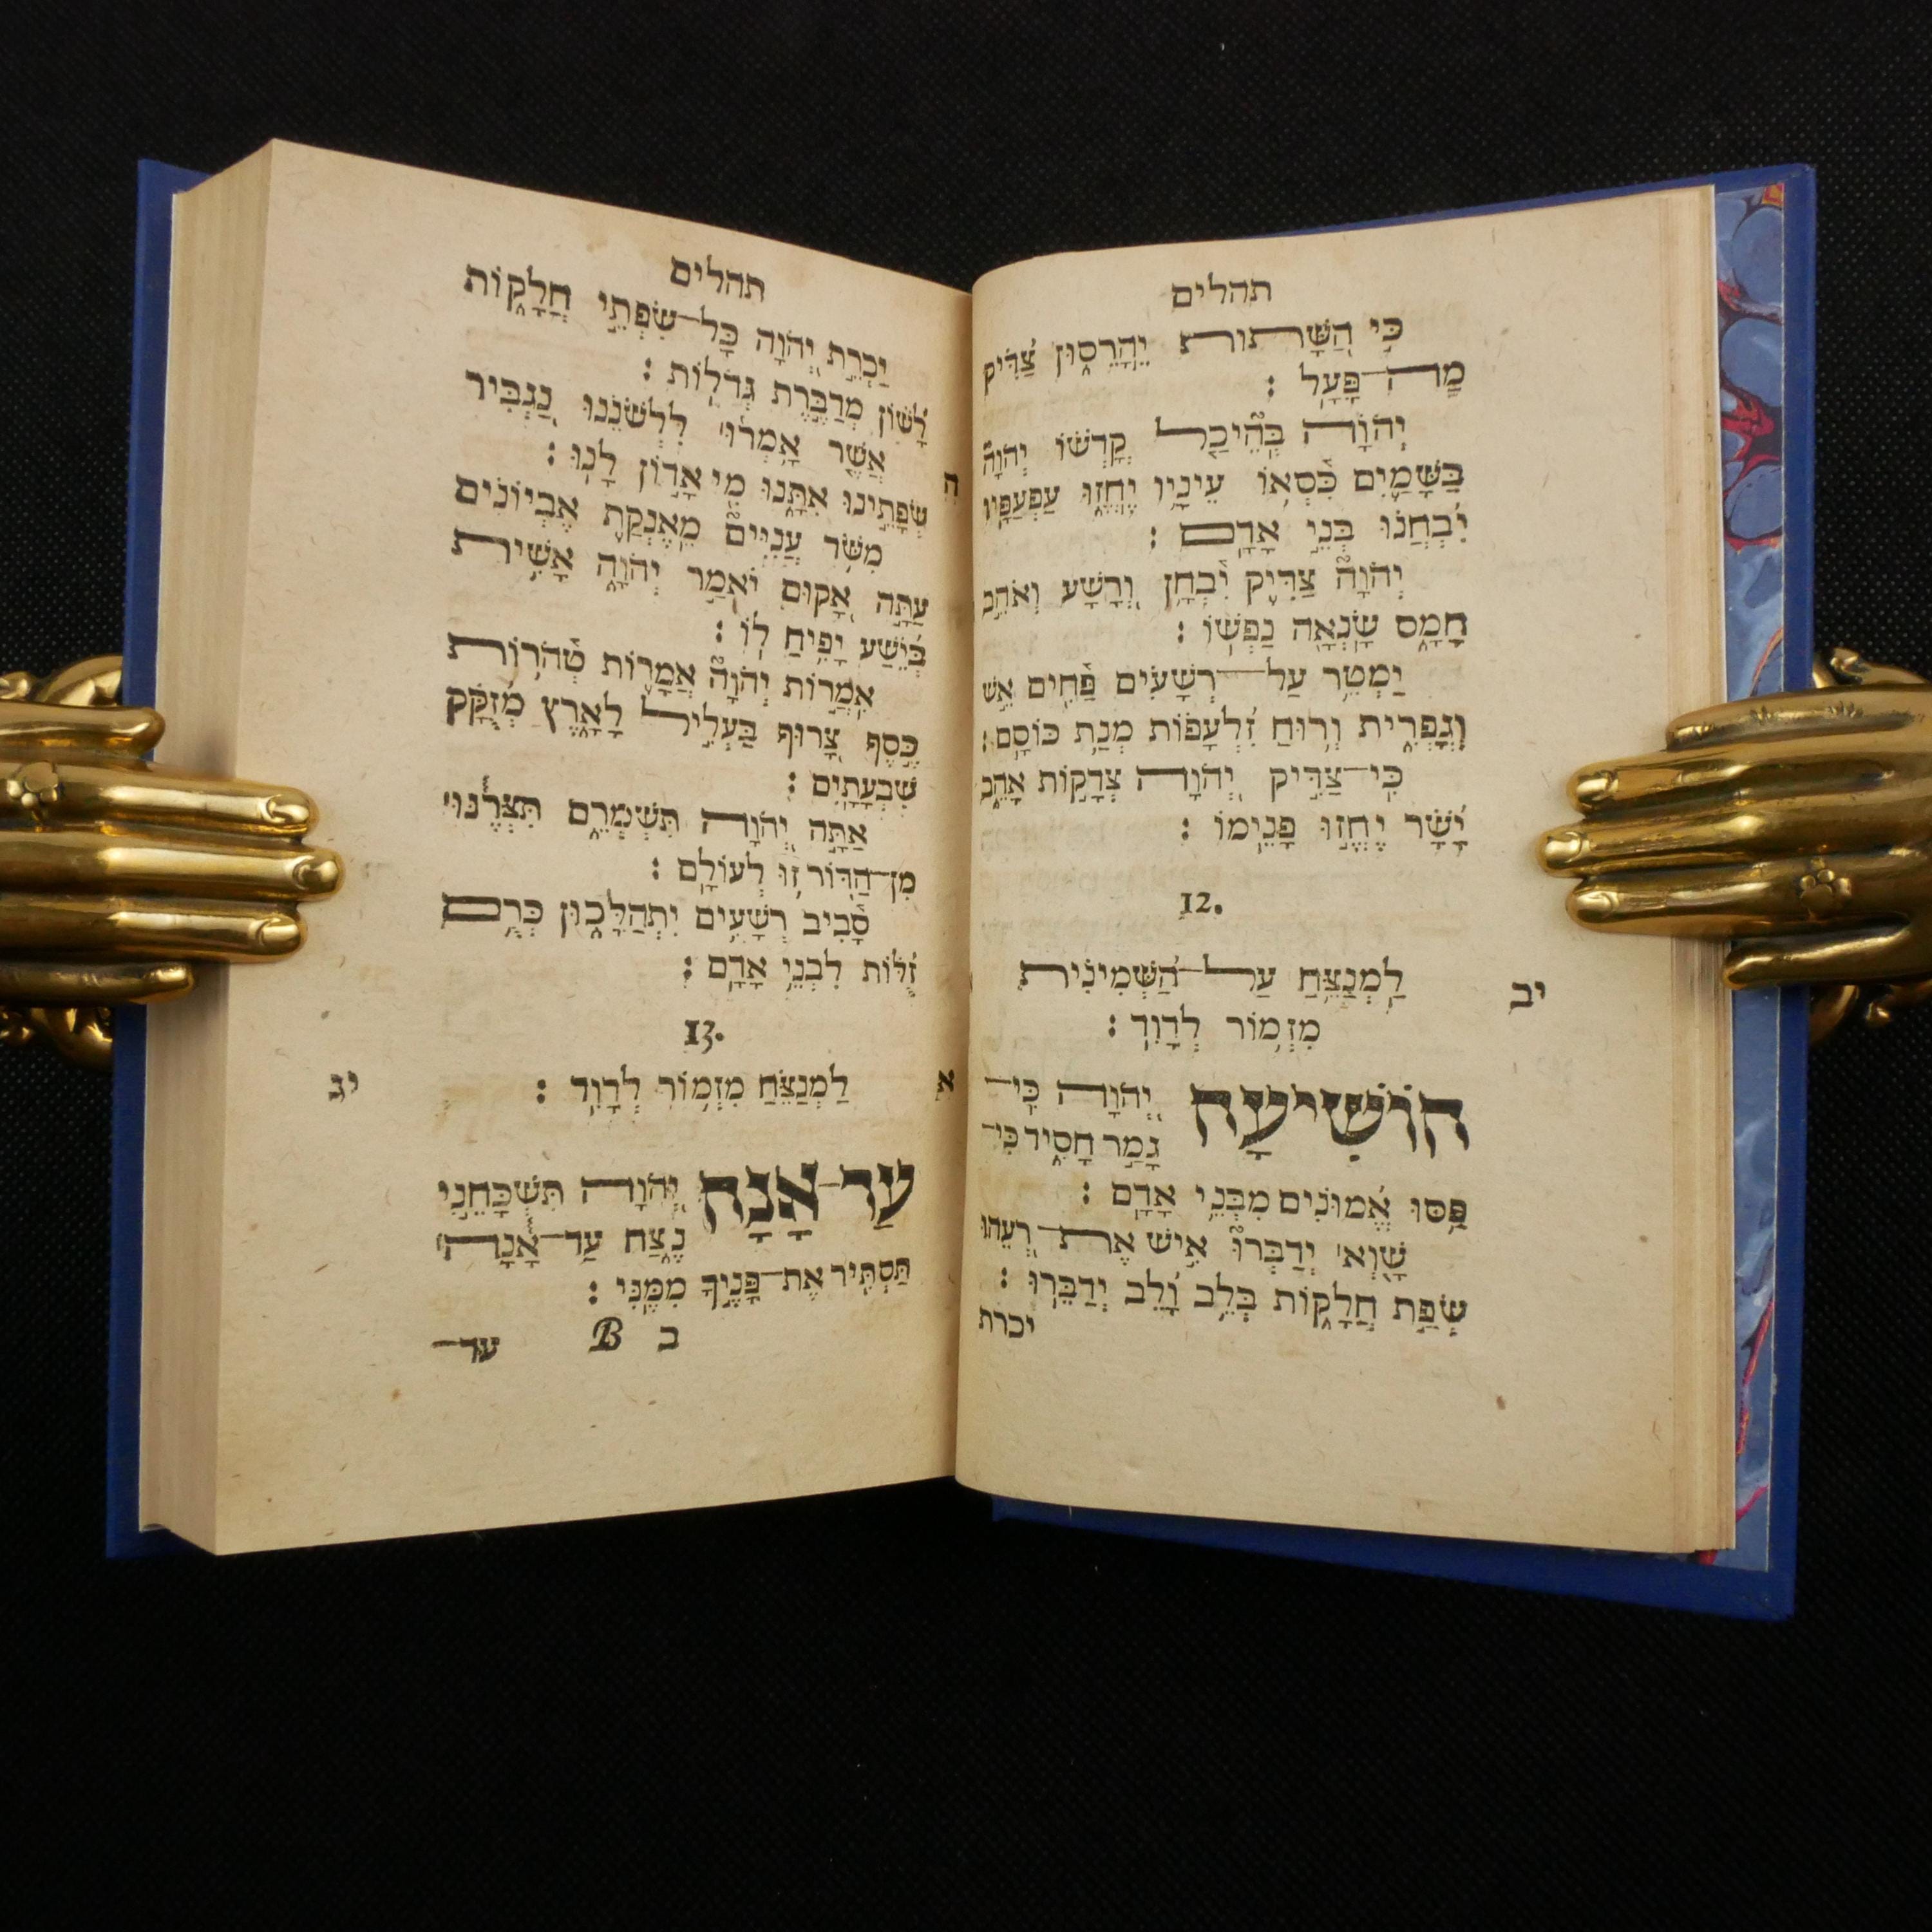 תהלים
כִּ֣י הַ֭שָּׁתוֹת יֵֽהָרֵס֑וּן צַ֝דִּ֗יק
מַה־פָּעָֽל׃
יְהוָ֤ה בְּֽהֵ֘יכַ֤ל קָדְשׁ֗וֹ יְהוָה֮
בַּשָּׁמַ֪יִם כִּ֫סְא֥וֹ עֵינָ֥יו יֶחֱז֑וּ עַפְעַפָּ֥יו
יִ֝בְחֲנ֗וּ בְּנֵ֣י אָדָֽם׃
יְהוָה֮ צַדִּ֪יק יִ֫בְחָ֥ן וְ֭רָשָׁע וְאֹהֵ֣ב
חָמָ֑ס שָֽׂנְאָ֥ה נַפְשֽׁוֹ׃
יַמְטֵ֥ר עַל־רְשָׁעִ֗ים פַּ֫חִ֥ים אֵ֣שׁ
וְ֭גָפְרִית וְר֥וּחַ זִלְעָפ֗וֹת מְנָ֣ת כּוֹסָֽם׃
כִּֽי־צַדִּ֣יק יְ֭הוָה צְדָק֣וֹת אָהֵ֑ב
יָ֝שָׁ֗ר יֶחֱז֥וּ פָנֵֽימוֹ׃
12.
יב
לַמְנַצֵּ֥חַ עַֽל־הַשְּׁמִינִ֗ית
מִזְמ֥וֹר לְדָוִֽד׃
הוֹשִׁיעָה יְ֭הוָה כִּי־
גָמַ֣ר חָסִ֑יד כִּי־
פַ֥סּוּ אֱ֝מוּנִ֗ים מִבְּנֵ֥י אָדָֽם׃
שָׁ֤וְא ׀ יְֽדַבְּרוּ֮ אִ֤ישׁ אֶת־רֵ֫עֵ֥הוּ
שְׂפַ֥ת חֲלָק֑וֹת בְּלֵ֖ב וָלֵ֣ב יְדַבֵּֽרוּ׃
יכרת
תהלים
יַכְרֵ֣ת יְ֭הוָה כָּל־שִׂפְתֵ֣י חֲלָק֑וֹת
לָ֝שׁ֗וֹן מְדַבֶּ֥רֶת גְּדֹלֽוֹת׃
אֲשֶׁ֤ר אָֽמְר֨וּ ׀ לִלְשֹׁנֵ֣נוּ נַ֭גְבִּיר
שְׂפָתֵ֣ינוּ אִתָּ֑נוּ מִ֖י אָד֣וֹן לָֽנוּ׃
מִשֹּׁ֥ד עֲנִיִּים֮ מֵאַנְקַ֪ת אֶבְי֫וֹנִ֥ים
עַתָּ֣ה אָ֭קוּם יֹאמַ֣ר יְהוָ֑ה אָשִׁ֥ית
בְּ֝יֵ֗שַׁע יָפִ֥יחַֽ לֽוֹ׃
אִֽמֲר֣וֹת יְהוָה֮ אֲמָר֪וֹת טְהֹ֫ר֥וֹת
כֶּ֣סֶף צָ֭רוּף בַּעֲלִ֣יל לָאָ֑רֶץ מְ֝זֻקָּ֗ק
שִׁבְעָתָֽיִם׃
אַתָּֽה יְ֭הוָה תִּשְׁמְרֵ֑ם תִּצְּרֶ֓נּוּ ׀
מִן־הַדּ֖וֹר ז֣וּ לְעוֹלָֽם׃
סָבִ֗יב רְשָׁעִ֥ים יִתְהַלָּכ֑וּן כְּרֻ֥ם
זֻ֝לּ֗וּת לִבְנֵ֥י אָדָֽם׃
13.
יג
לַמְנַצֵּ֗חַ מִזְמ֥וֹר לְדָוִֽד׃
עַד־אָנָה יְ֭הוָה תִּשְׁכָּחֵ֣נִי
נֶ֑צַח עַד־אָ֓נָה ׀
תַּסְתִּ֖יר אֶת־פָּנֶ֣יךָ מִמֶּֽנִּי׃
ב B עד־